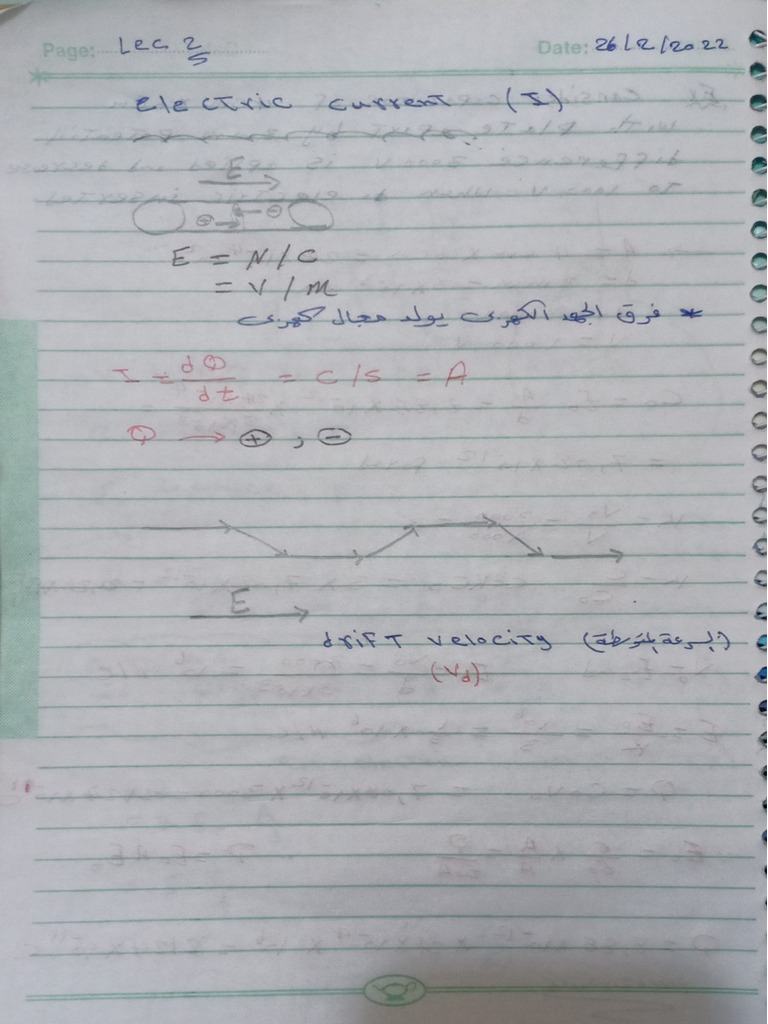 Page: Lec 2/5 Date: 26/2/2022
Electric current (I)
E
⊕ ⊖
E = N/C
= V/m
* فرق الجهد الكهرى يولد مجال كهرى
I = dQ/dt = C/S = A
Q → ⊕ , ⊖
E
drift velocity (السرعة المتوسطة)
(Vd)